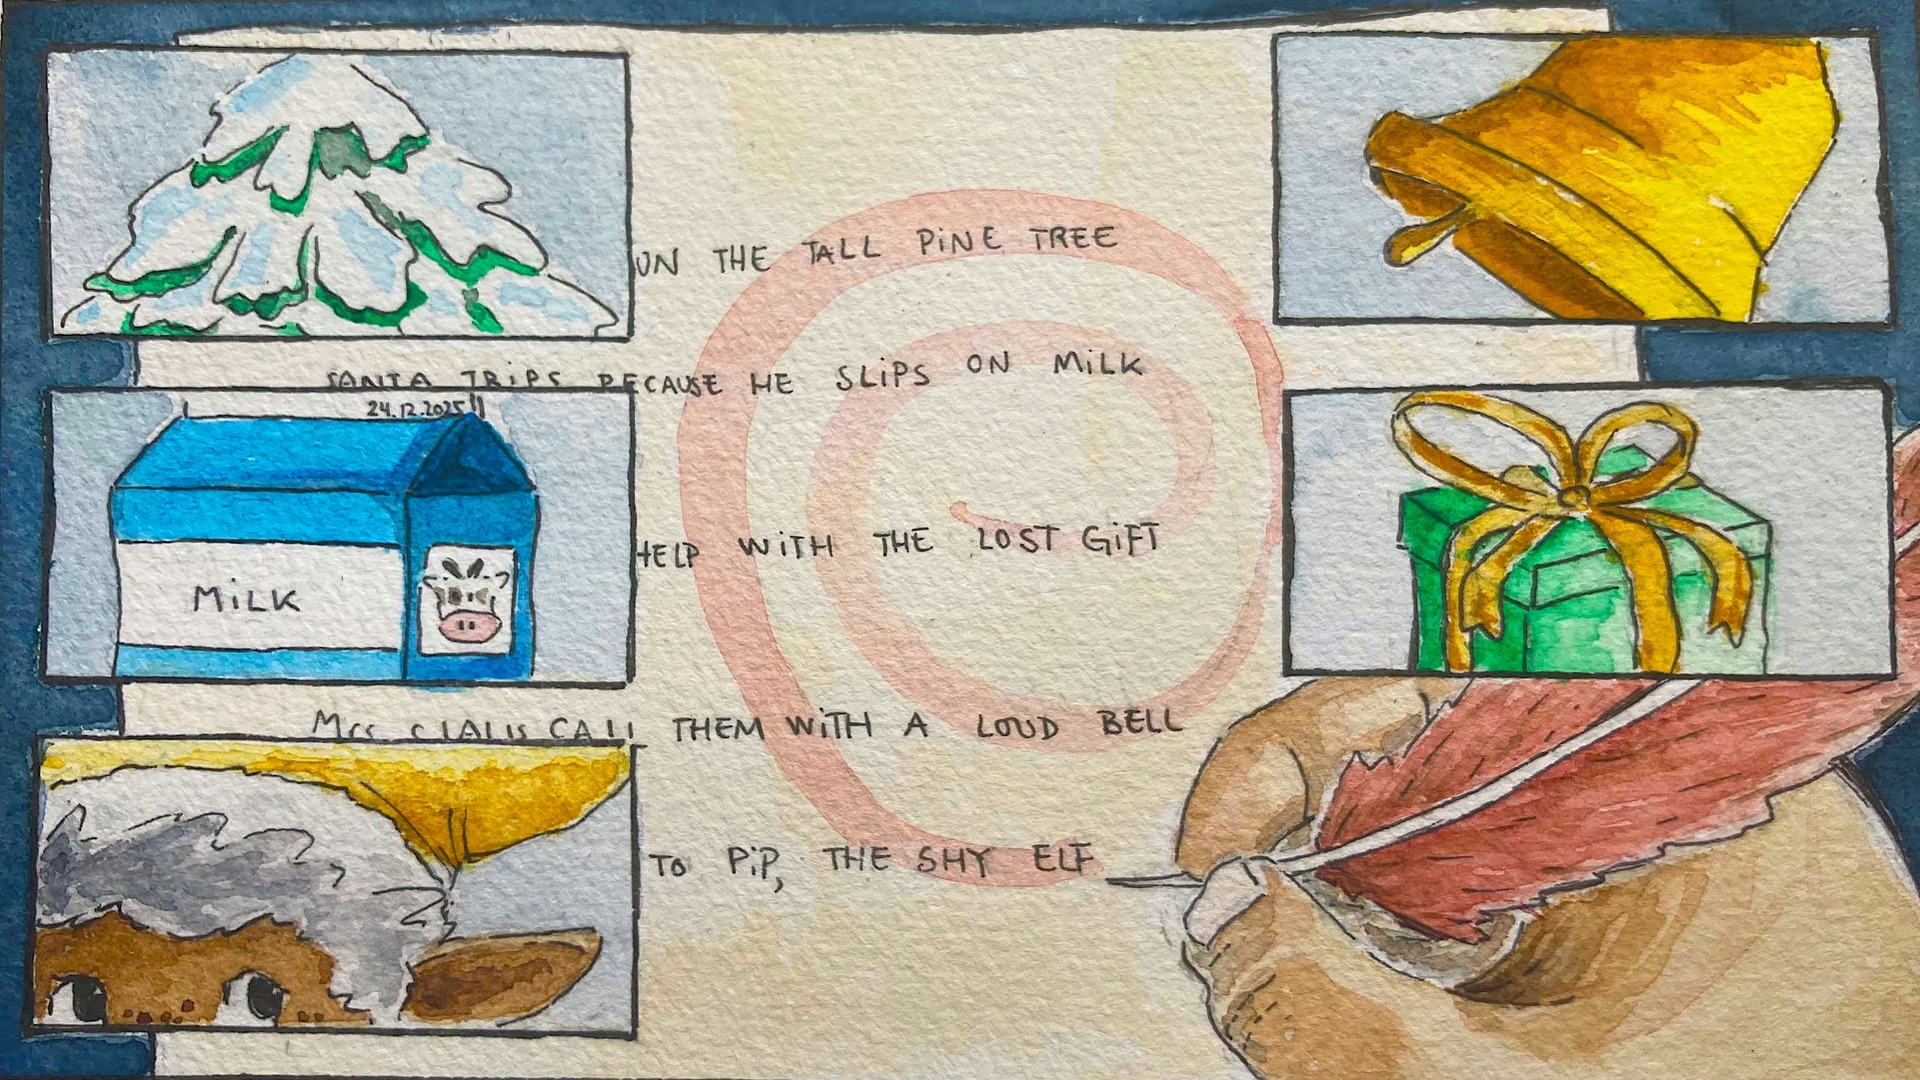 ON THE TALL PiNE TREE
SANTA TRiPS BECAUSE HE SLiPS ON MiLK
24.12.2025
MiLK
HELP WiTH THE LOST GiFT
Mrs CLAUS CALL THEM WiTH A LOUD BELL
TO PiP, THE SHY ELF